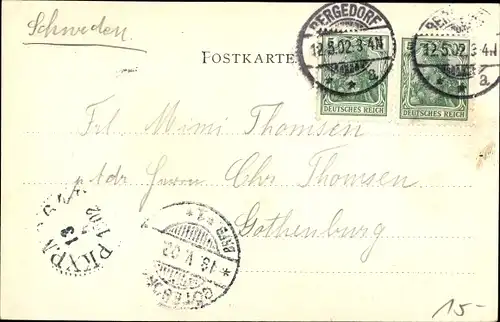 Schweden.
POSTKARTE
BERGEDORF
12.5.02.3-4N
* * a
12.5.02.3-4N
* a
5 5
DEUTSCHES REICH
DEUTSCHES REICH
Frl Mimi Thomsen
p Adr Herrn Chr Thomsen
Gothenburg
13
1902
PKXPN
GÖTEBORG
* 13.V.02 *
15-